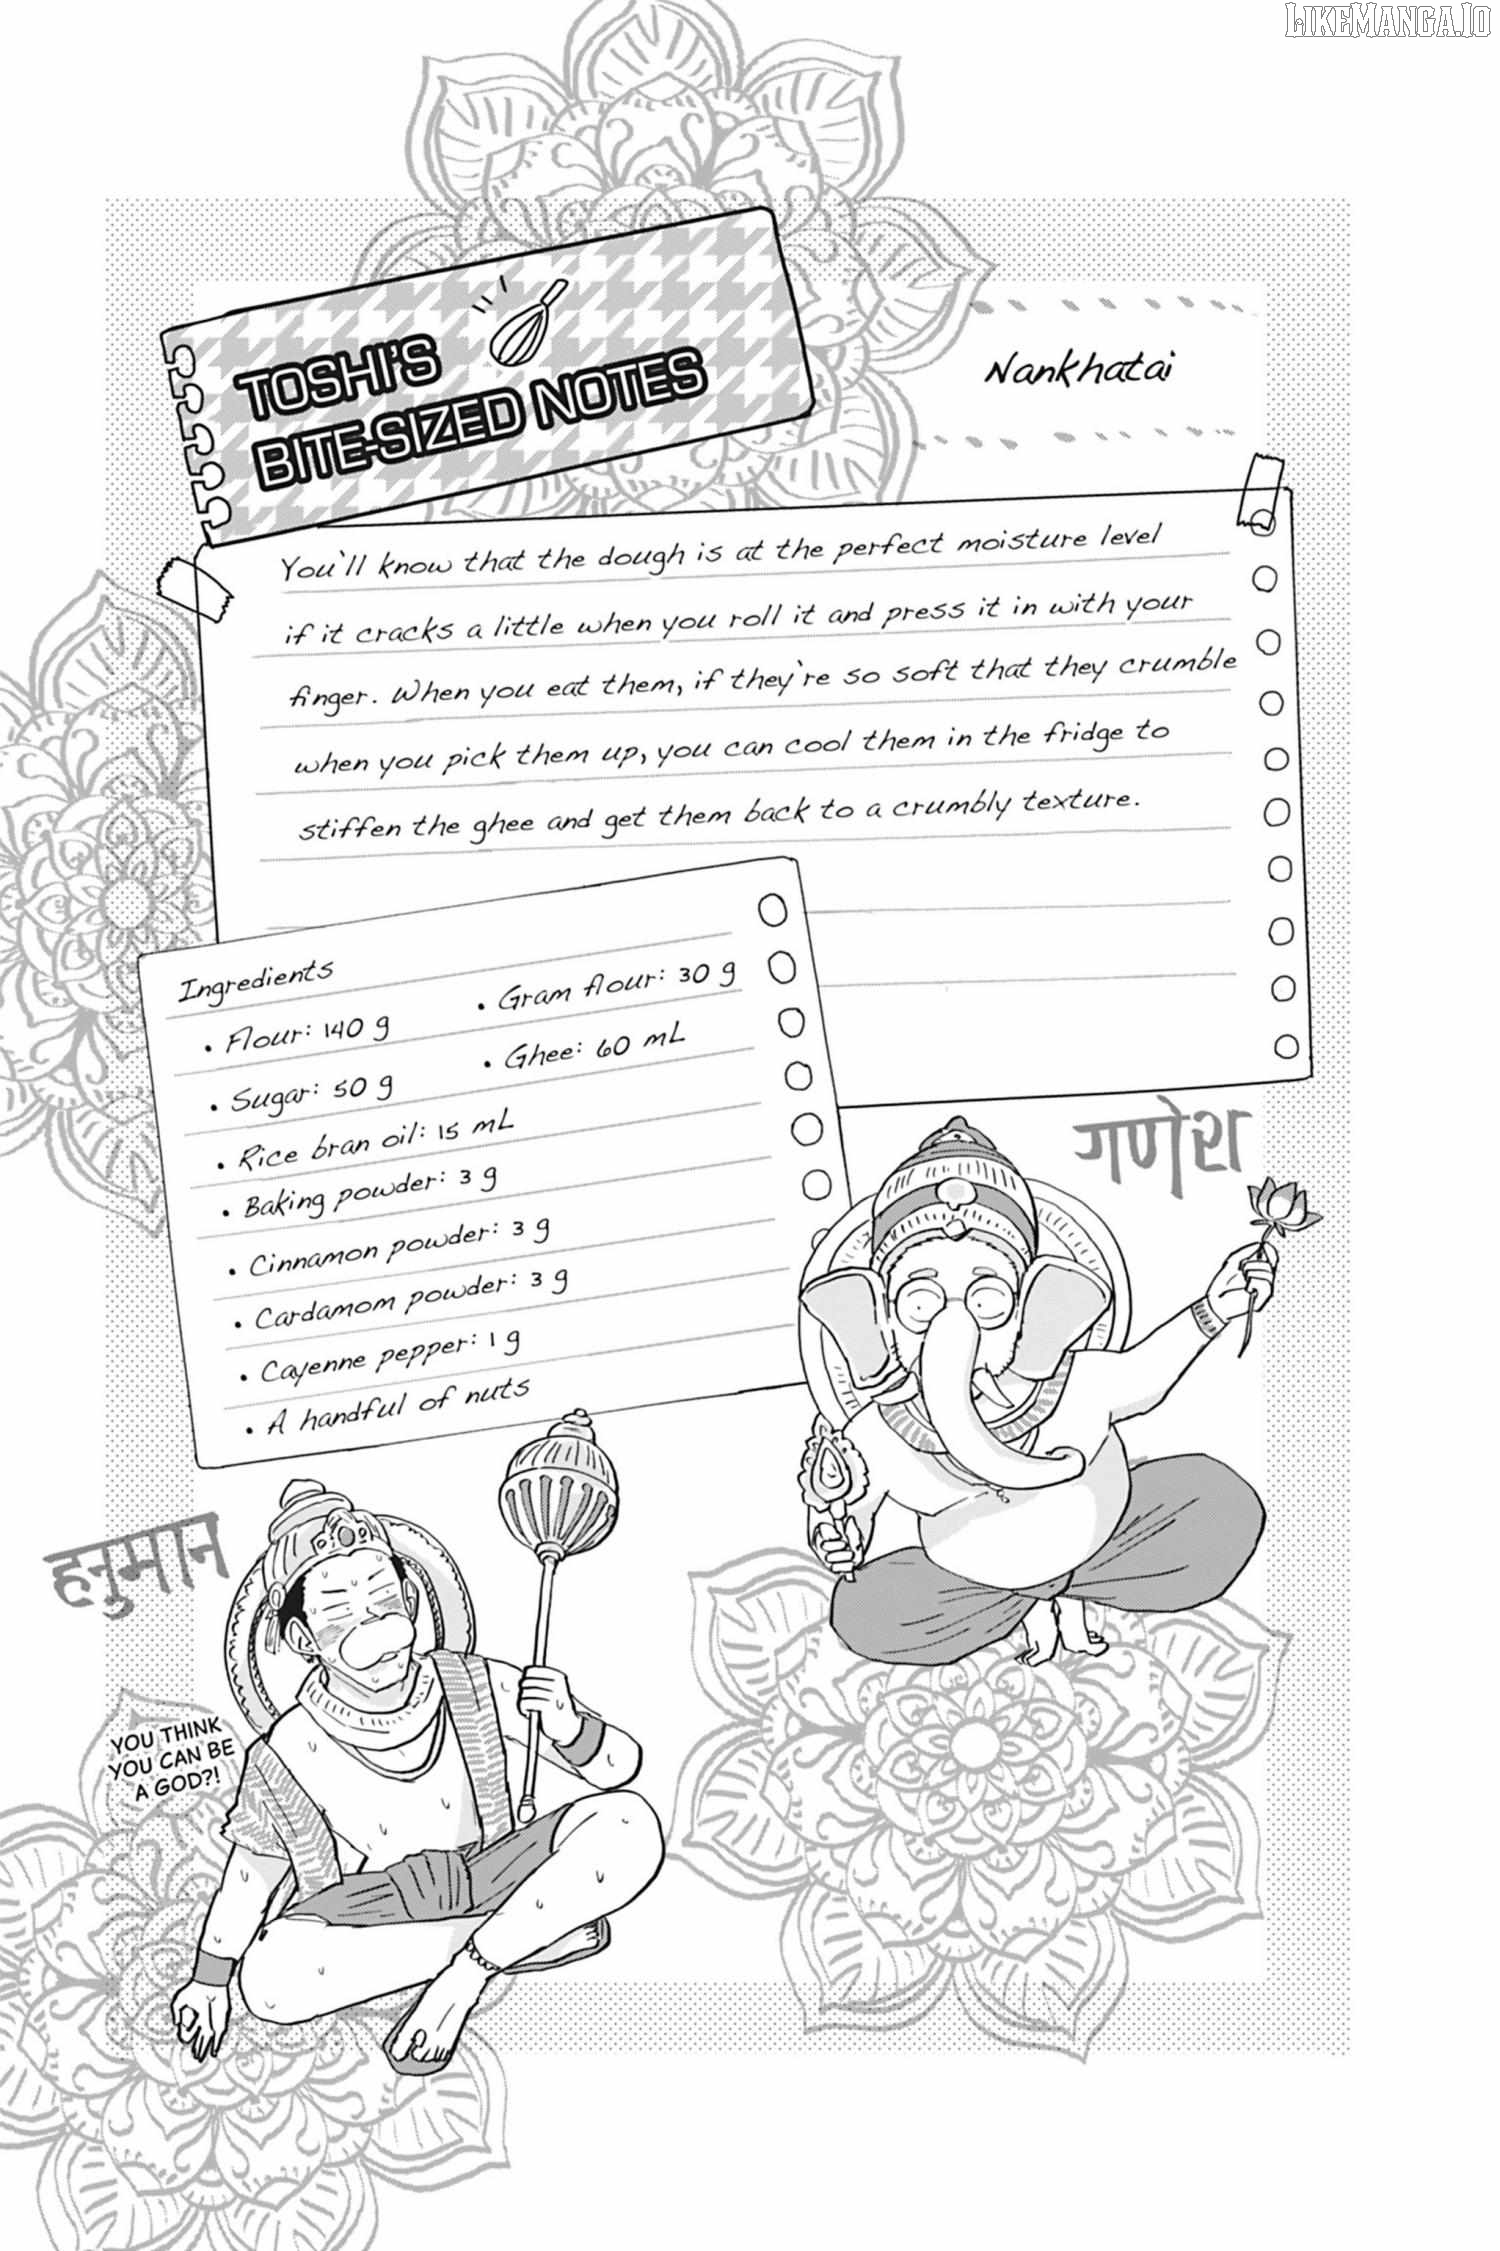 LIKEMANGA.IO
TOSHI'S
BITE-SIZED NOTES
Nankhatai
You'll know that the dough is at the perfect moisture level
if it cracks a little when you roll it and press it in with your
finger. When you eat them, if they're so soft that they crumble
when you pick them up, you can cool them in the fridge to
stiffen the ghee and get them back to a crumbly texture.
Ingredients
• Flour: 140 g
• Gram flour: 30 g
• Sugar: 50 g
• Ghee: 60 mL
• Rice bran oil: 15 mL
• Baking powder: 3 g
• Cinnamon powder: 3 g
• Cardamom powder: 3 g
• Cayenne pepper: 1 g
• A handful of nuts
गणेश
हनुमान
YOU THINK
YOU CAN BE
A GOD?!